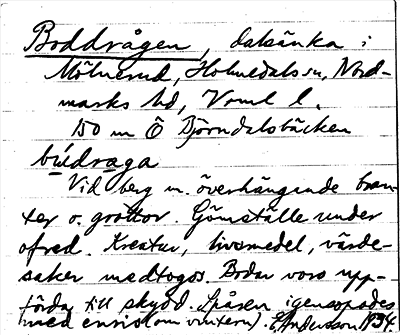 Boddrågen, dalsänka i
Mölnerud, Holmedals sn, Nord-
marks hd, Vrml l.
150 m Ö Björndalsbäcken
bú̀draga
Vid berg m. överhängande bran-
ter o. grottor. Gömställe under
ofred. Kreatur, livsmedel, värde-
saker medtogos. Bodar voro upp-
förda till skydd. Spåren igensopades
med enris (om vintern) E. Andersson 1934.